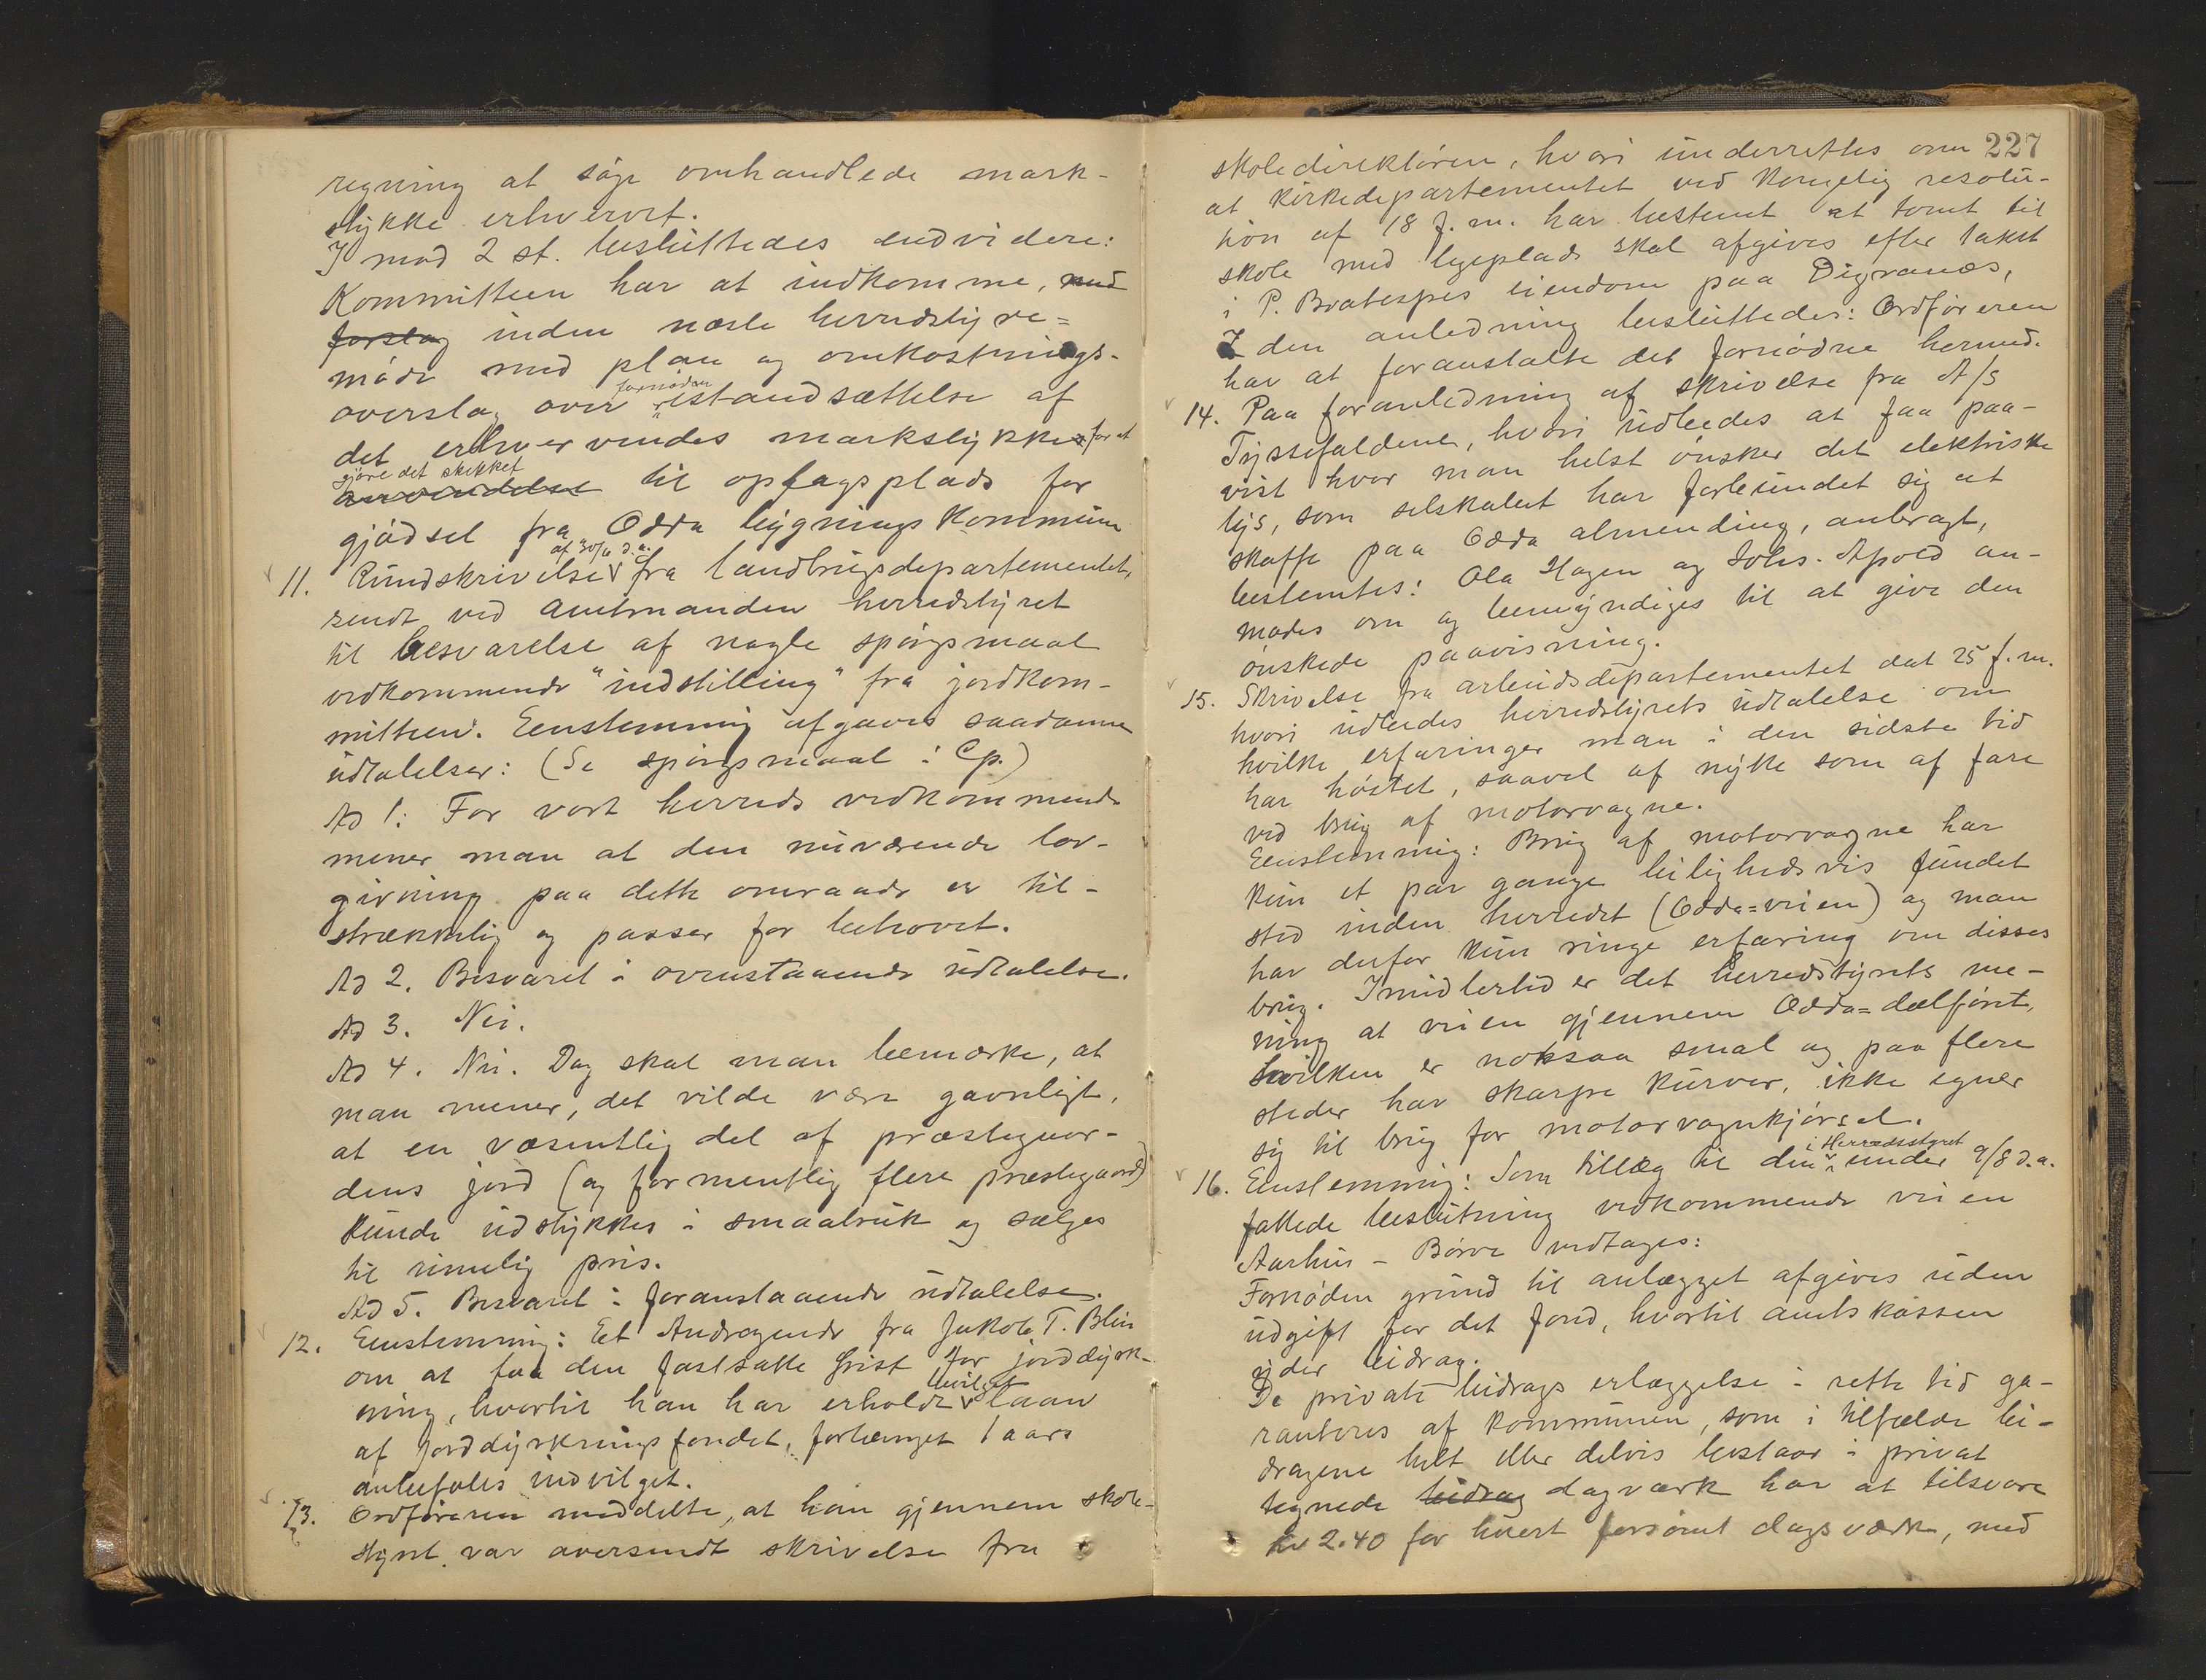 regning at søge omhandlede mark-
stykke erhvervet.
I mod 2 st. besluttedes endvidere:
Kommitteen har at indkomme, med
forslag inden næste herredstyre=
møde med plan og omkostnings-
overslag over fornøden istandsættelse af
det erhvervendes markstykke for at
gjøre det skikket
anvendelse til oplagsplads for
gjødsel fra Odda bygningskommune
11. Rundskrivelse af 30/6 d.a. fra landbrugsdepartementet,
sendt ved amtmanden herredstyret
til besvarelse af nogle spørgsmaal
vedkommende "indstilling" fra jordkom-
mitteen. Eenstemmig afgaves saadanne
udtalelser: (Se spørgsmaal i Cp.)
Ad 1: For vort herreds vedkommende
mener man at den nuværende lov-
givning paa dette omraade er til-
strækkelig og passer for behovet.
Ad 2. Besvaret i ovenstaaende udtalelse.
Ad 3. Nei.
Ad 4. Nei. Dog skal man bemærke, at
man mener, det vilde være gavnligt,
at en væsentlig del af præstegaar-
dens jord (og formentlig flere præstegaarde)
kunde udstykkes i smaabruk og sælges
til rimelig pris.
Ad 5. Besvaret i foranstaaende udtalelse.
12. Eenstemmig: Et Andragende fra Jakob T. Blin
om at faa den fastsatte frist for jorddyrk-
ning, hvortil han har erholdt bevilget laan
af jorddyrkningsfondet, forlænget 1 aars
anbefales indvilget.
13. Ordføreren meddelte, at han gjennem skole-
styret var oversendt skrivelse fra
227
skoledirektøren, hvori underrettes om
at Kirkedepartementet ved Kongelig resolu-
tion af 18 f.m. har bestemt at tomt til
skole med legeplads skal afgives efter takst
i P. Bratespes eiendom paa Digranæs,
I den anledning besluttedes: Ordføreren
har at foranstalte det fornødne hermed.
14. Paa foranledning af skrivelse fra A/S
Tyssefaldene, hvori udbedes at faa paa-
vist hvor man helst ønsker det elektriske
lys, som selskabet har forbundet sig at
skaffe paa Odda almending, anbragt,
bestemtes: Ola Hagen og Johs. Apold an-
modes om og bemyndiges til at give den
ønskede paavisning.
15. Skrivelse fra arbeidsdepartementet dat 25 f.m.
hvori udbedes herredstyrets udtalelse om
hvilke erfaringer man i den sidste tid
har høstet, saavel af nytte som af fare
ved brug af motorvagne.
Eenstemmig: Brug af motorvagne har
kun et par gange leilighedsvis fundet
sted inden herredet (Odda=veien) og man
har derfor kun ringe erfaring om disses
brug. Imidlertid er det herredstyrets me-
ning at veien gjennem Odda=dalføret,
hvilken er noksaa smal og paa flere
steder har skarpe kurver, ikke egner
sig til brug for motorvognkjørsel.
16. Eenstemmig: Som tillæg til den i Herredsstyret under 9/8 d.a.
fattede beslutning vedkommende veien
Aarhus - Børve vedtages:
Fornøden grund til anlægget afgives uden
udgift for det fond, hvortil amtskassen
yder bidrag.
De private bidrags erlæggelse i rette tid ga-
ranteres af kommunen, som i tilfælde bi-
dragene helt eller delvis bestaar i privat
tegnede bidrag dagværk har at tilsvare
kr 2.40 for hvert forsømt dagsværk, med